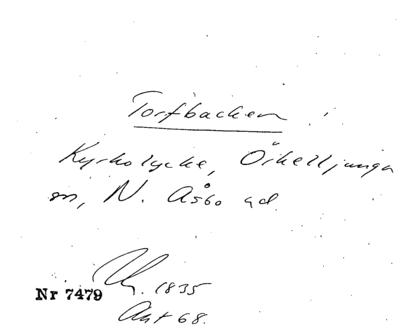 Torfbacken
Kyrkolycke, Örkelljunga
sn, N. Åsbo hd
1835
Nr 7479
Akt 68.